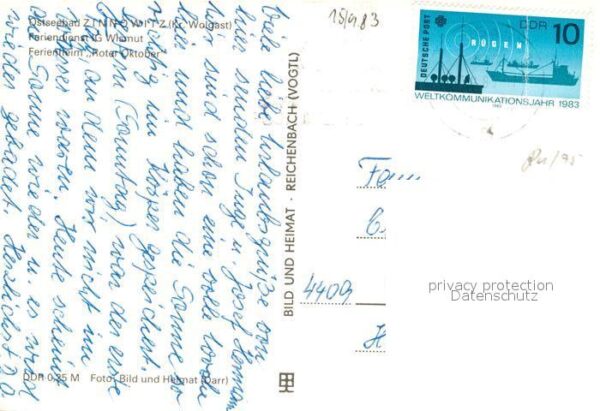 Ostseebad ZINNOWITZ (Kr. Wolgast)
Feriendienst IG Wismut
Ferienheim „Roter Oktober"
15/9 83
DEUTSCHE POST
DDR 10
RÜGEN
WELTKOMMUNIKATIONSJAHR 1983
Viele liebe Urlaubsgrüße von
hier senden Inge u. Josef
Wir sind schon eine volle Woche
hier und haben die Sonne so
richtig im Körper gespeichert.
Gestern (Samstag) war der erste
Tag, an dem wir nicht im
Wasser waren. Heute scheint
die Sonne wieder u. es wird
wieder gebadet. Herzlichst D.O.
BILD UND HEIMAT · REICHENBACH (VOGTL)
Fam
C.
4409
H
privacy protection
Datenschutz
DDR 0,25 M Foto: Bild und Heimat (Darr)